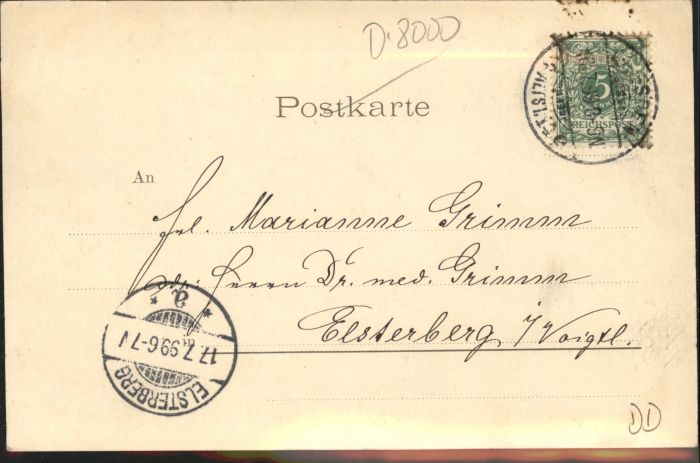 D.8000
5
REICHSPOST
Postkarte
ALTST.
An
Frl. Marianne Grimm
adr: Herrn Dr. med. Grimm
Elsterberg i/Voigtl.
17.7.99.6-7V
ELSTERBERG
DD